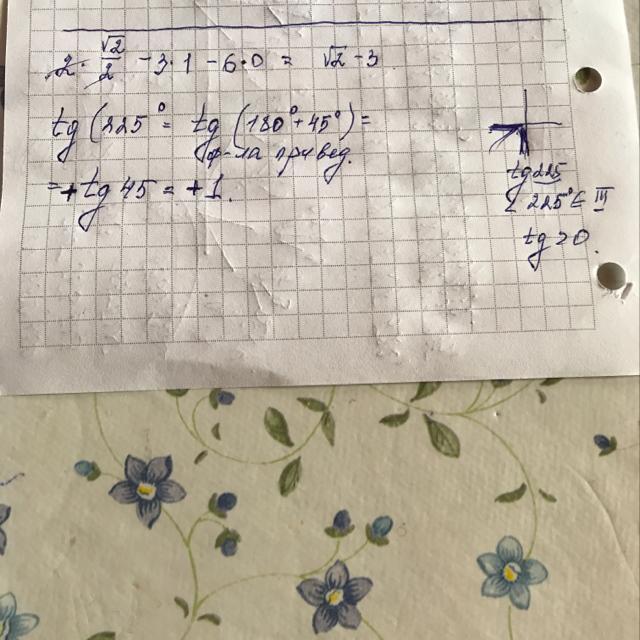 2 · √2/2 - 3·1 - 6·0 = √2 - 3
tg (225° = tg (180° + 45°) =
ф-ла привед.
= + tg 45 = + 1.
tg 225
∠ 225° ∈ III
tg > 0.